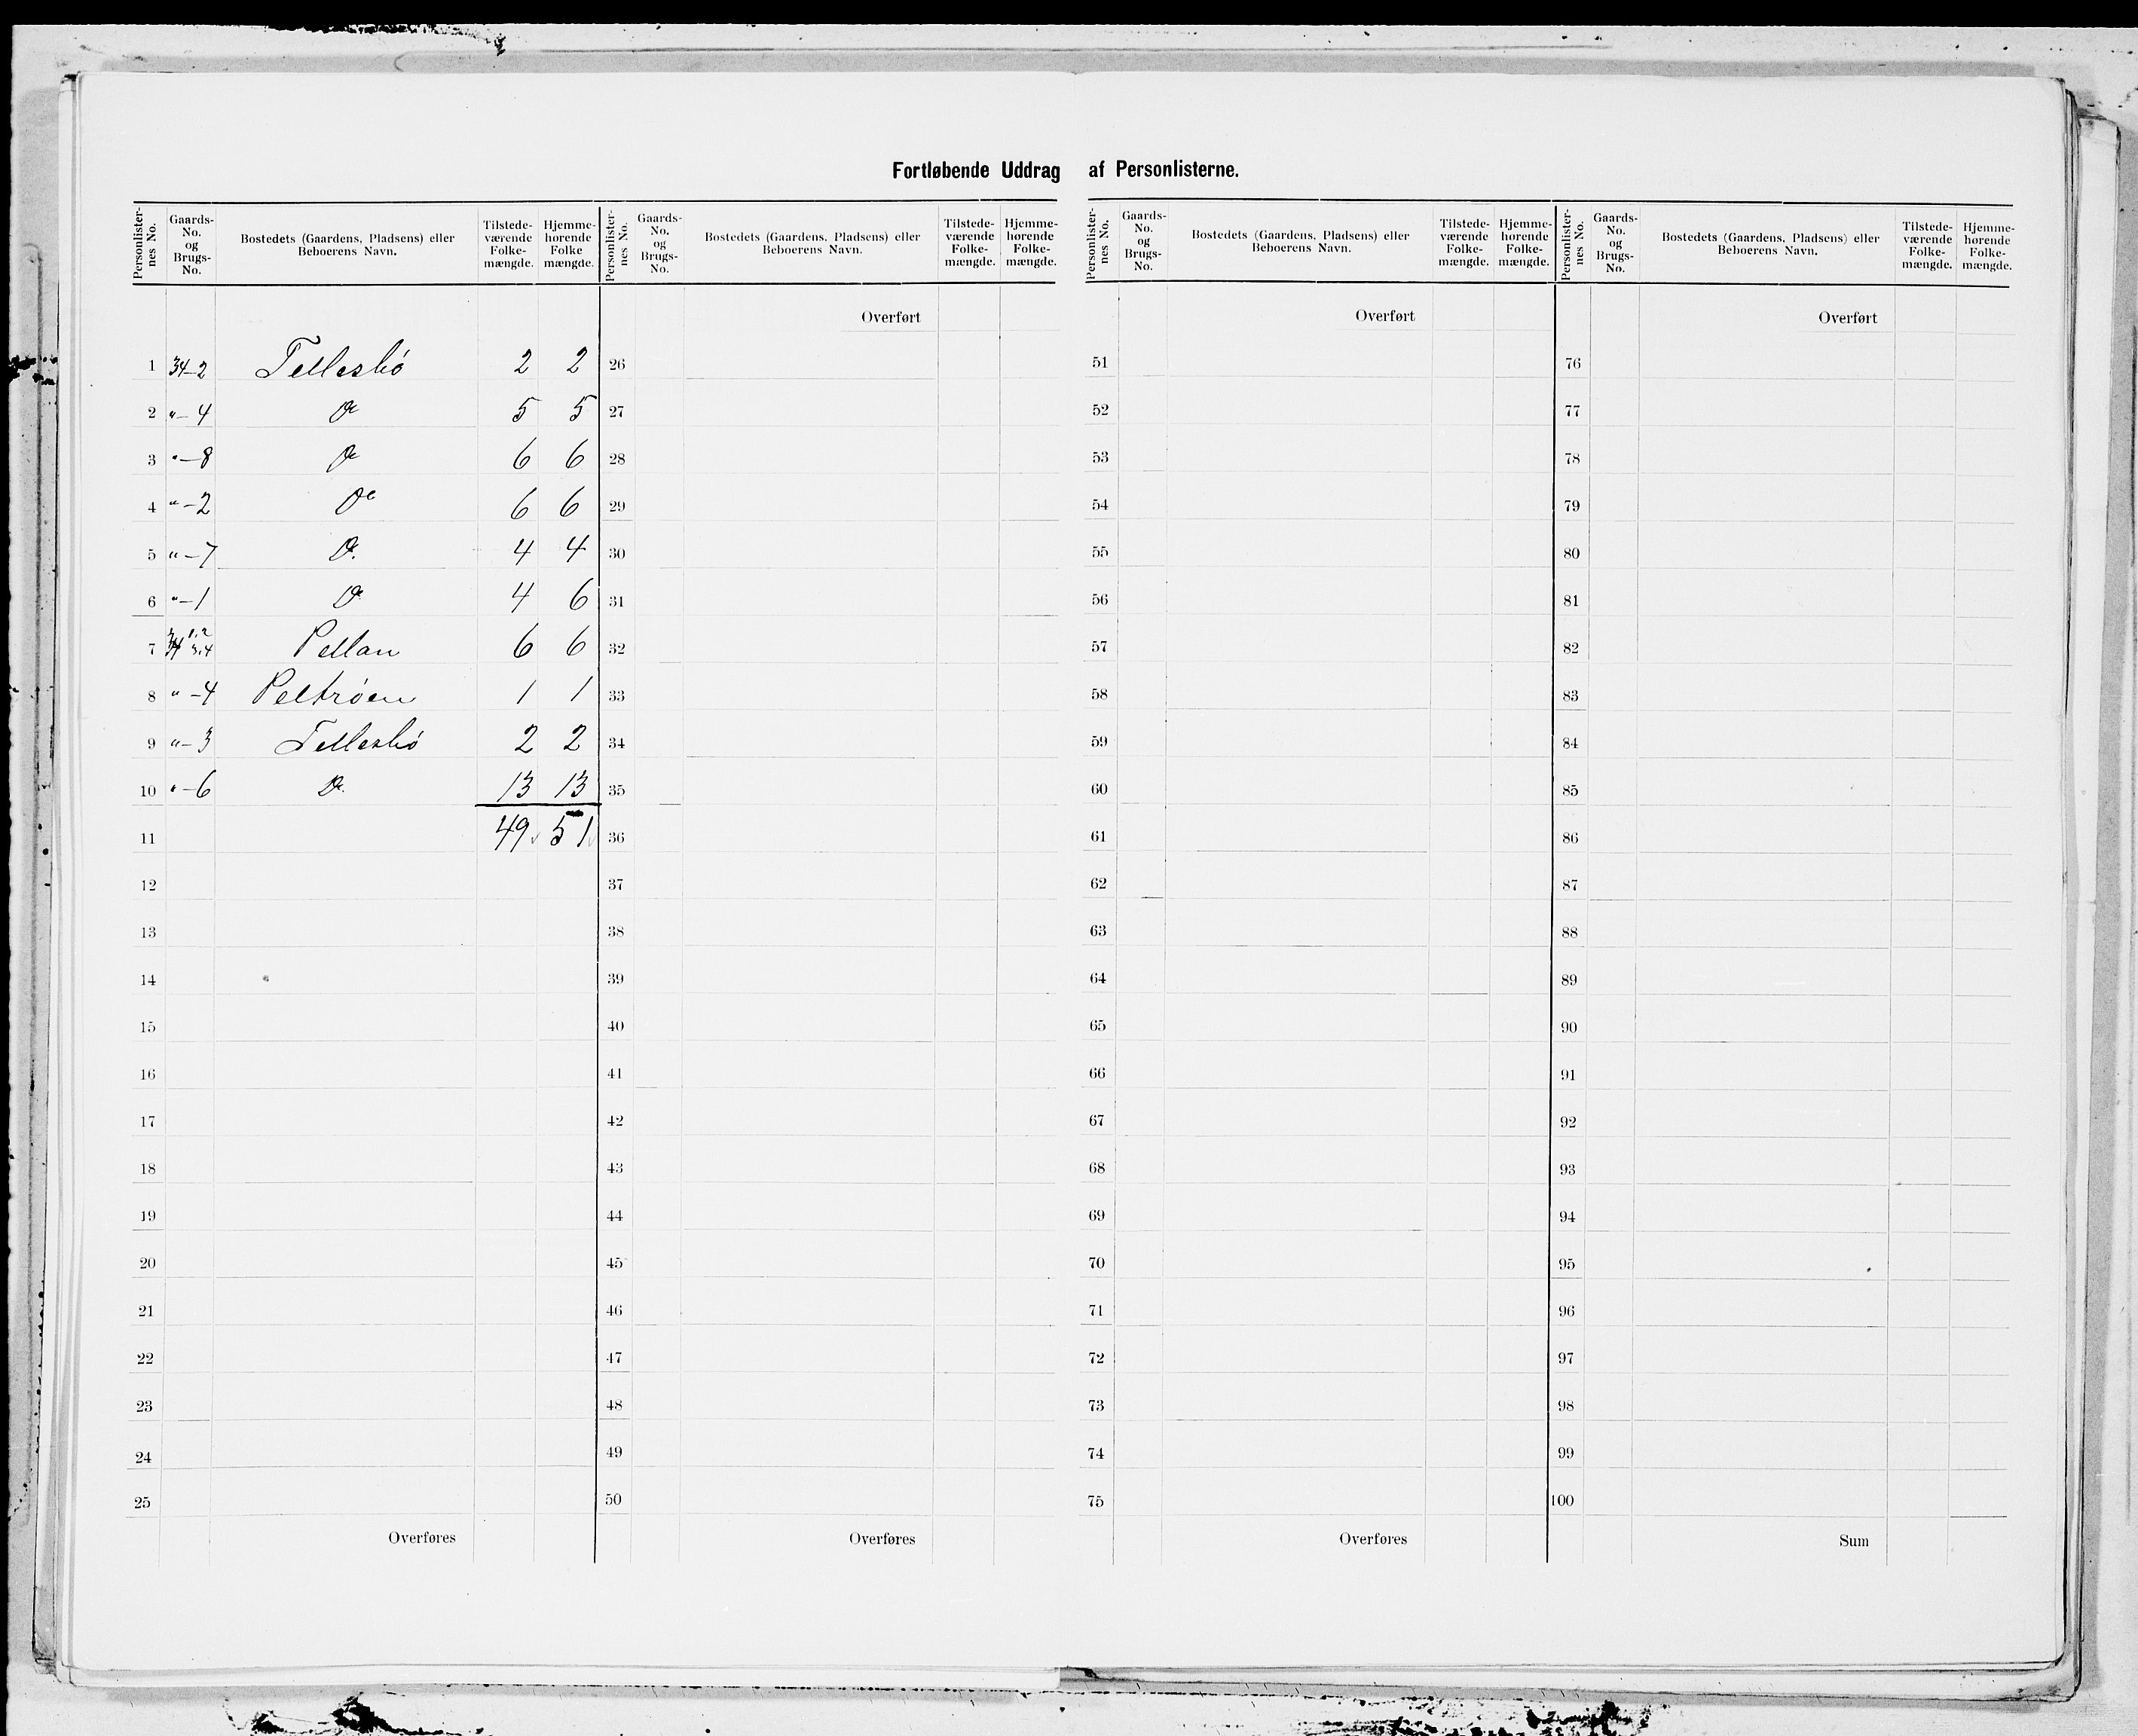 Fortløbende Uddrag af Personlisterne.
Personlister-nes No. | Gaards-No. og Brugs-No. | Bostedets (Gaardens, Pladsens) eller Beboerens Navn. | Tilstede-værende Folke-mængde. | Hjemme-hørende Folke mængde.
1 34-2 Tellesbó 2 2
2 "-4 Do 5 5
3 "-8 Do 6 6
4 "-2 Do 6 6
5 "-7 Do. 4 4
6 "-1 Do 4 6
7 34 1,2 3,4 Pellan 6 6
8 "-4 Peltróen 1 1
9 "-3 Tellesbó 2 2
10 "-6 Do. 13 13
11 49 51
12
13
14
15
16
17
18
19
20
21
22
23
24
25
Overføres
Personlister-nes No. | Gaards-No. og Brugs-No. | Bostedets (Gaardens, Pladsens) eller Beboerens Navn. | Tilstede-værende Folke-mængde. | Hjemme-hørende Folke-mængde.
Overført
26
27
28
29
30
31
32
33
34
35
36
37
38
39
40
41
42
43
44
45
46
47
48
49
50
Overføres
Personlister-nes No. | Gaards-No. og Brugs-No. | Bostedets (Gaardens, Pladsens) eller Beboerens Navn. | Tilstede-værende Folke-mængde. | Hjemme-hørende Folke-mængde.
Overført
51
52
53
54
55
56
57
58
59
60
61
62
63
64
65
66
67
68
69
70
71
72
73
74
75
Overføres
Personlister-nes No. | Gaards-No. og Brugs-No. | Bostedets (Gaardens, Pladsens) eller Beboerens Navn. | Tilstede-værende Folke-mængde. | Hjemme-hørende Folke-mængde.
Overført
76
77
78
79
80
81
82
83
84
85
86
87
88
89
90
91
92
93
94
95
96
97
98
99
100
Sum